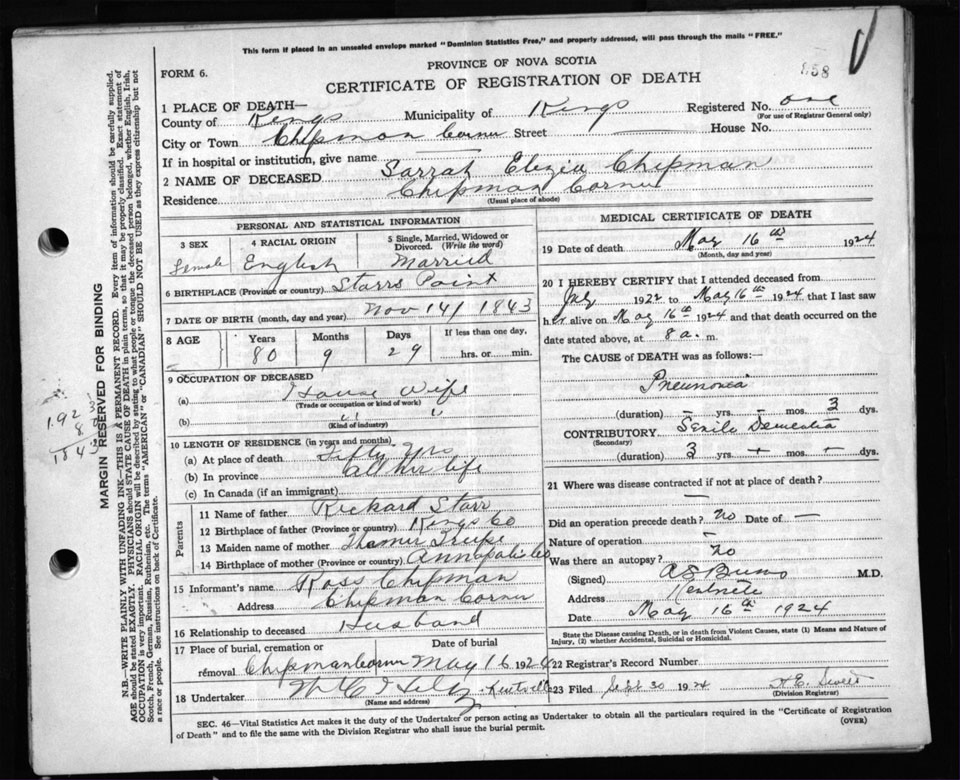 This form if placed in an unsealed envelope marked "Dominion Statistics Free," and properly addressed, will pass through the mails "FREE."
PROVINCE OF NOVA SCOTIA
FORM 6.
CERTIFICATE OF REGISTRATION OF DEATH
1 PLACE OF DEATH—
County of Kings Municipality of Kings Registered No. one
(For use of Registrar General only)
City or Town Chipman Corner Street House No.
If in hospital or institution, give name
2 NAME OF DECEASED Sarrah Chipman
Residence Chipman Corner
(Usual place of abode)
PERSONAL AND STATISTICAL INFORMATION
3 SEX 4 RACIAL ORIGIN 5 Single, Married, Widowed or Divorced. (Write the word)
Female English Married
6 BIRTHPLACE (Province or country) Starrs Point
7 DATE OF BIRTH (month, day and year) Nov 14/ 1843
8 AGE Years Months Days If less than one day,
80 9 29 hrs. or min.
9 OCCUPATION OF DECEASED
(a) House Wife
(Trade or occupation or kind of work)
(b) " "
(Kind of industry)
10 LENGTH OF RESIDENCE (in years and months)
(a) At place of death Fifty Yrs
(b) In province all her life
(c) In Canada (if an immigrant)
Parents
11 Name of father Richard Starr
12 Birthplace of father (Province or country) Kings Co
13 Maiden name of mother
14 Birthplace of mother (Province or country) Annapolis Co
15 Informant's name Ross Chipman
Address Chipman Corner
16 Relationship to deceased Husband
17 Place of burial, cremation or removal Date of burial
Chipman Corner May 16 1924
18 Undertaker Kentville
(Name and address)
MEDICAL CERTIFICATE OF DEATH
19 Date of death May 16th 1924
(Month, day and year)
20 I HEREBY CERTIFY that I attended deceased from
1922 to May 16th 1924 that I last saw
her alive on May 16th 1924 and that death occurred on the
date stated above, at 8 a. m.
The CAUSE of DEATH was as follows:
Pneumonia
(duration) – yrs. – mos. 3 dys.
CONTRIBUTORY Senile Dementia
(Secondary)
(duration) 3 yrs. mos. dys.
21 Where was disease contracted if not at place of death?
—
Did an operation precede death? no Date of —
Nature of operation —
Was there an autopsy? no
(Signed) M.D.
Address Kentville
Date May 16th 1924
State the Disease causing Death, or in death from Violent Causes, state (1) Means and Nature of Injury, (2) whether Accidental, Suicidal or Homicidal.
22 Registrar's Record Number
23 Filed Sept 30 1924
(Division Registrar)
SEC. 46—Vital Statistics Act makes it the duty of the Undertaker or person acting as Undertaker to obtain all the particulars required in the "Certificate of Registration
of Death" and to file the same with the Division Registrar who shall issue the burial permit.
(OVER)
MARGIN RESERVED FOR BINDING
N.B.—WRITE PLAINLY WITH UNFADING INK—THIS IS A PERMANENT RECORD. Every item of information should be carefully supplied.
AGE should be stated EXACTLY. PHYSICIANS should STATE CAUSE OF DEATH in plain terms, so that it may be properly classified. Exact statement of
OCCUPATION is very important. RACIAL ORIGIN will be described by stating to what people or tongue the deceased person belonged, whether English, Irish,
Scotch, French, German, Russian, Ruthenian, etc. The terms "AMERICAN" or "CANADIAN" SHOULD NOT BE USED as they express citizenship but not
a race or people. See instructions on back of Certificate.